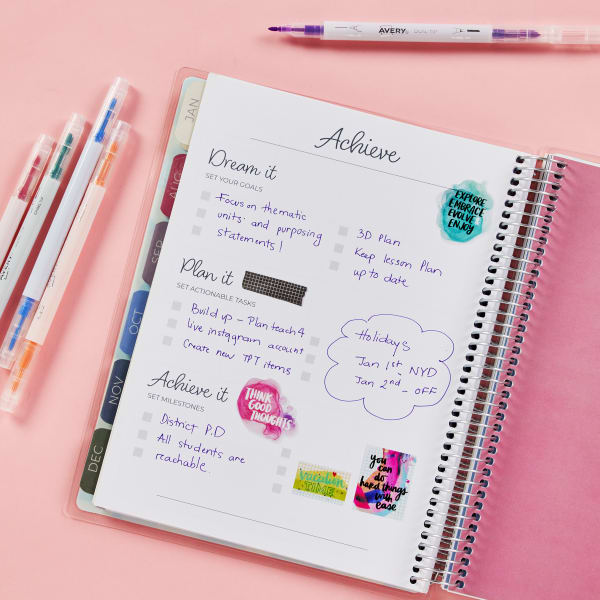 AVERY DUAL TIP
JAN
AUG
SEP
OCT
NOV
DEC
Achieve
Dream it
SET YOUR GOALS
Focus on thematic
units and purposing
statements!
3D Plan
Keep lesson Plan
up to date
EXPLORE
EMBRACE
EVOLVE
ENJOY
Plan it
SET ACTIONABLE TASKS
Build up - Plan teach 4
live instagram account
Create new TPT items
Holidays
Jan 1st - NYD
Jan 2nd - OFF
Achieve it
SET MILESTONES
District P.D
All students are
reachable.
THINK
GOOD
THOUGHTS
Vacation
TIME
you
can
do
hard things
with
ease
AVERY